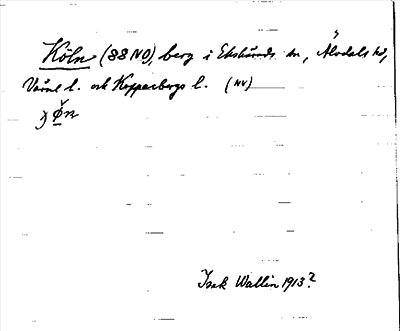 Köln (88 NO), berg i Ekshärads sn, Älvdals hd,
Värml l. och Kopparbergs l. (NV)
Isak Wallin 1913?